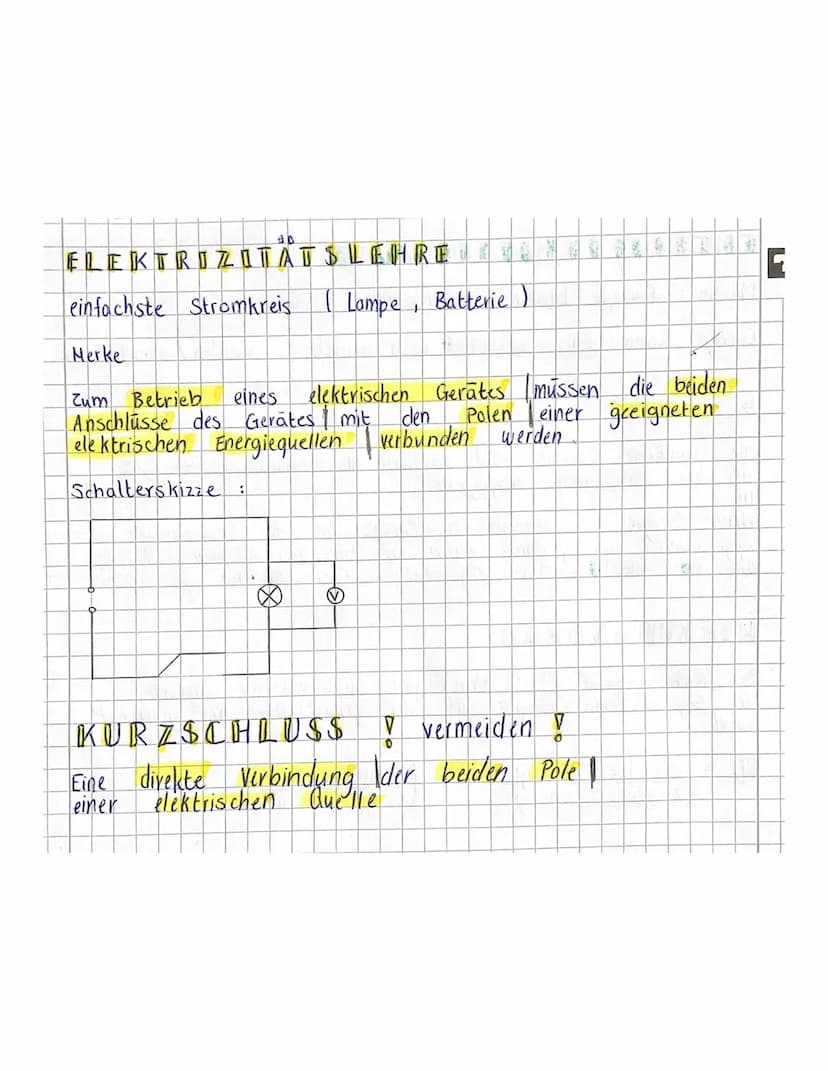 ELEKTRIZITÄTSLEHRE
einfachste Stromkreis ( Lampe , Batterie )
Merke
Zum Betrieb eines elektrischen Gerätes | müssen die beiden
Anschlüsse des Gerätes | mit den Polen | einer geeigneten
elektrischen Energiequellen | verbunden werden.
Schalterskizze :
V
KURZSCHLUSS ! vermeiden !
Eine direkte Verbindung | der beiden Pole |
einer elektrischen Quelle